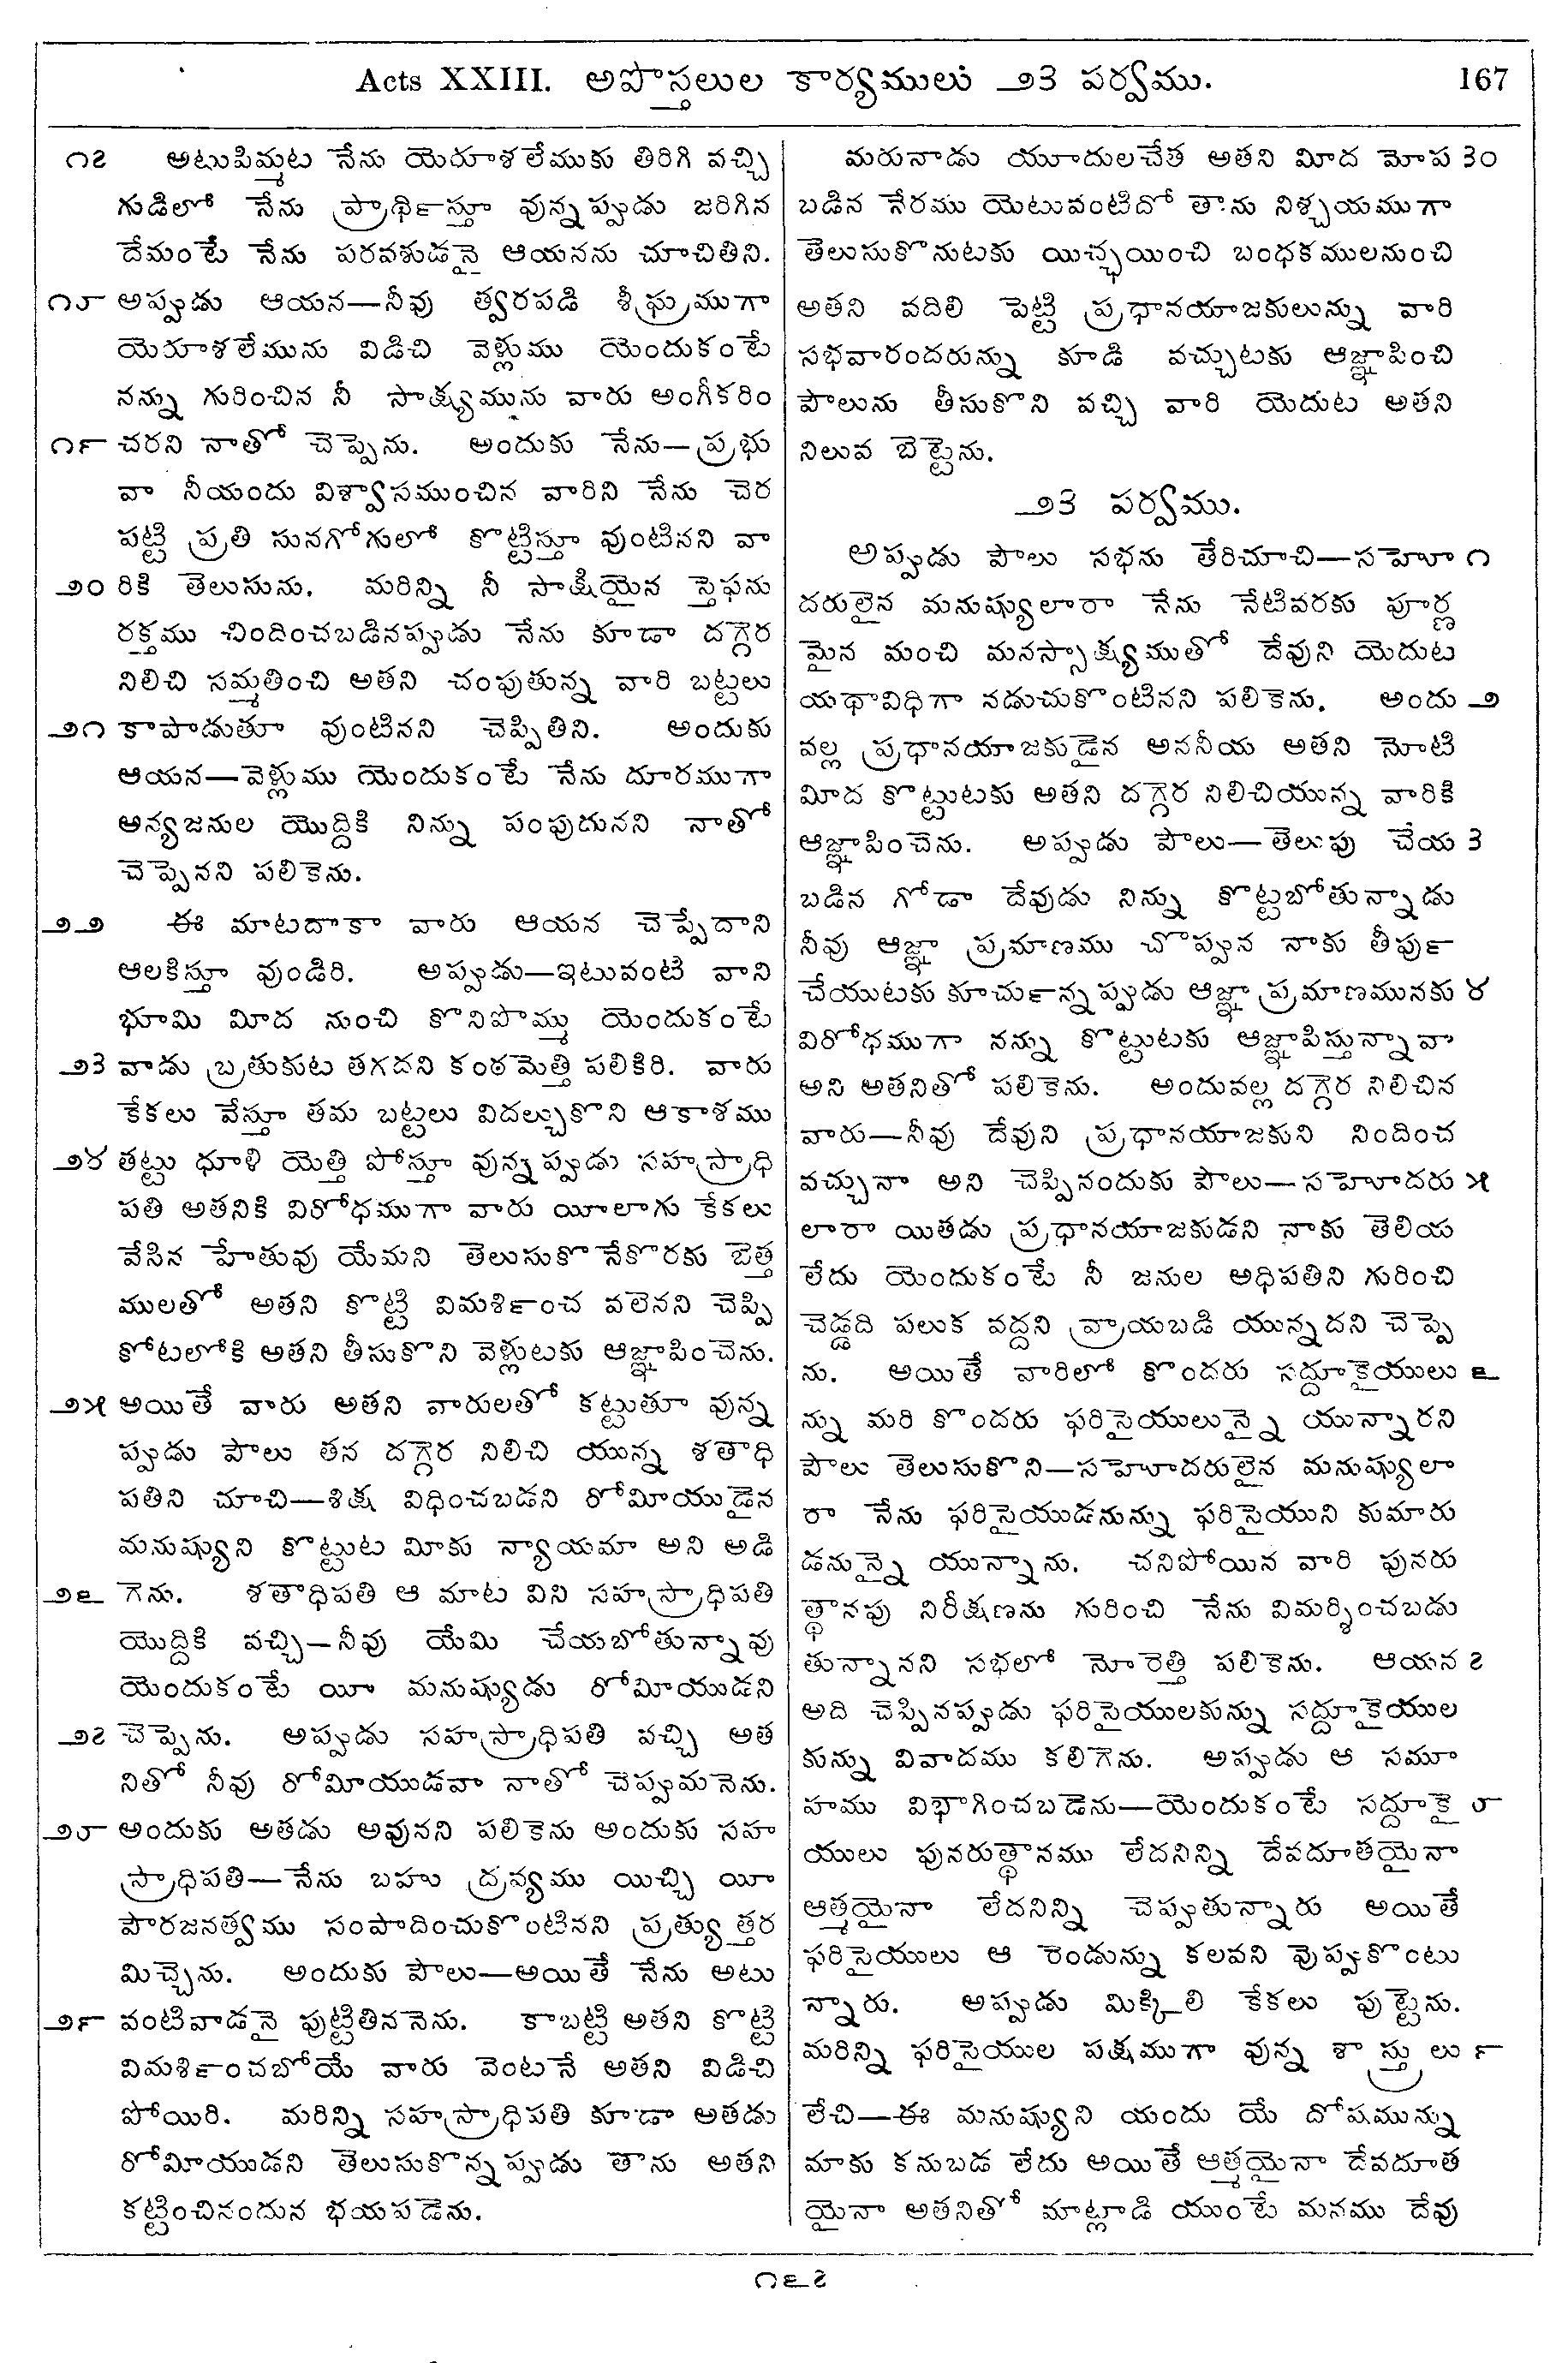 Acts XXIII. అపొస్తలుల కార్యములు ౨౩ పర్వము. 167
౧౭ అటుపిమ్మట నేను యెరూశలేముకు తిరిగి వచ్చి
గుడిలో నేను ప్రార్థిస్తూ వున్నప్పుడు జరిగిన
దేమంటే నేను పరవశుడనై ఆయనను చూచితిని.
౧౮ అప్పుడు ఆయన—నీవు త్వరపడి శీఘ్రముగా
యెరూశలేమును విడిచి వెళ్లుము యెందుకంటే
నన్ను గురించిన నీ సాక్ష్యమును వారు అంగీకరిం
౧౯ చరని నాతో చెప్పెను. అందుకు నేను—ప్రభు
వా నీయందు విశ్వాసముంచిన వారిని నేను చెర
పట్టి ప్రతి సునగోగులో కొట్టిస్తూ వుంటినని వా
౨౦ రికి తెలుసును. మరిన్ని నీ సాక్షియైన స్తెఫను
రక్తము చిందించబడినప్పుడు నేను కూడా దగ్గెర
నిలిచి సమ్మతించి అతని చంపుతున్న వారి బట్టలు
౨౧ కాపాడుతూ వుంటినని చెప్పితిని. అందుకు
ఆయన—వెళ్లుము యెందుకంటే నేను దూరముగా
అన్యజనుల యొద్దికి నిన్ను పంపుదునని నాతో
చెప్పెనని పలికెను.
౨౨ ఈ మాటదాకా వారు ఆయన చెప్పేదాని
ఆలకిస్తూ వుండిరి. అప్పుడు—ఇటువంటి వాని
భూమి మీద నుంచి కొనిపొమ్ము యెందుకంటే
౨౩ వాడు బ్రతుకుట తగదని కంఠమెత్తి పలికిరి. వారు
కేకలు వేస్తూ తమ బట్టలు విదల్చుకొని ఆకాశము
౨౪ తట్టు ధూళి యెత్తి పోస్తూ వున్నప్పుడు సహస్రాధి
పతి అతనికి విరోధముగా వారు యీలాగు కేకలు
వేసిన హేతువు యేమని తెలుసుకొనేకొరకు బెత్త
ములతో అతని కొట్టి విమర్శించ వలెనని చెప్పి
కోటలోకి అతని తీసుకొని వెళ్లుటకు ఆజ్ఞాపించెను.
౨౫ అయితే వారు అతని వారులతో కట్టుతూ వున్న
ప్పుడు పౌలు తన దగ్గెర నిలిచి యున్న శతాధి
పతిని చూచి—శిక్ష విధించబడని రోమీయుడైన
మనుష్యుని కొట్టుట మీకు న్యాయమా అని అడి
౨౬ గెను. శతాధిపతి ఆ మాట విని సహస్రాధిపతి
యొద్దికి వచ్చి—నీవు యేమి చేయబోతున్నావు
యెందుకంటే యీ మనుష్యుడు రోమీయుడని
౨౭ చెప్పెను. అప్పుడు సహస్రాధిపతి వచ్చి అత
నితో నీవు రోమీయుడవా నాతో చెప్పుమనెను.
౨౮ అందుకు అతడు అవునని పలికెను అందుకు సహ
స్రాధిపతి—నేను బహు ద్రవ్యము యిచ్చి యీ
పౌరజనత్వము సంపాదించుకొంటినని ప్రత్యుత్తర
మిచ్చెను. అందుకు పౌలు—అయితే నేను అటు
౨౯ వంటివాడనై పుట్టితిననెను. కాబట్టి అతని కొట్టి
విమర్శించబోయే వారు వెంటనే అతని విడిచి
పోయిరి. మరిన్ని సహస్రాధిపతి కూడా అతడు
రోమీయుడని తెలుసుకొన్నప్పుడు తాను అతని
కట్టించినందున భయపడెను.
మరునాడు యూదులచేత అతని మీద మోప ౩౦
బడిన నేరము యెటువంటిదో తాను నిశ్చయముగా
తెలుసుకొనుటకు యిచ్ఛయించి బంధకములనుంచి
అతని వదిలి పెట్టి ప్రధానయాజకులున్ను వారి
సభవారందరున్ను కూడి వచ్చుటకు ఆజ్ఞాపించి
పౌలును తీసుకొని వచ్చి వారి యెదుట అతని
నిలువ బెట్టెను.
౨౩ పర్వము.
అప్పుడు పౌలు సభను తేరిచూచి—సహో ౧
దరులైన మనుష్యులారా నేను నేటివరకు పూర్ణ
మైన మంచి మనస్సాక్ష్యముతో దేవుని యెదుట
యథావిధిగా నడుచుకొంటినని పలికెను. అందు ౨
వల్ల ప్రధానయాజకుడైన అననీయ అతని నోటి
మీద కొట్టుటకు అతని దగ్గెర నిలిచియున్న వారికి
ఆజ్ఞాపించెను. అప్పుడు పౌలు—తెలుపు చేయ ౩
బడిన గోడా దేవుడు నిన్ను కొట్టబోతున్నాడు
నీవు ఆజ్ఞా ప్రమాణము చొప్పున నాకు తీర్పు
చేయుటకు కూర్చున్నప్పుడు ఆజ్ఞా ప్రమాణమునకు ౪
విరోధముగా నన్ను కొట్టుటకు ఆజ్ఞాపిస్తున్నావా
అని అతనితో పలికెను. అందువల్ల దగ్గెర నిలిచిన
వారు—నీవు దేవుని ప్రధానయాజకుని నిందించ
వచ్చునా అని చెప్పినందుకు పౌలు—సహోదరు ౫
లారా యితడు ప్రధానయాజకుడని నాకు తెలియ
లేదు యెందుకంటే నీ జనుల అధిపతిని గురించి
చెడ్డది పలుక వద్దని వ్రాయబడి యున్నదని చెప్పె
ను. అయితే వారిలో కొందరు సద్దూకైయులు ౬
న్ను మరి కొందరు ఫరిసైయులున్నై యున్నారని
పౌలు తెలుసుకొని—సహోదరులైన మనుష్యులా
రా నేను ఫరిసైయుడనున్ను ఫరిసైయుని కుమారు
డనున్నై యున్నాను. చనిపోయిన వారి పునరు
త్థానపు నిరీక్షణను గురించి నేను విమర్శించబడు
తున్నానని సభలో నోరెత్తి పలికెను. ఆయన ౭
అది చెప్పినప్పుడు ఫరిసైయులకున్ను సద్దూకైయుల
కున్ను వివాదము కలిగెను. అప్పుడు ఆ సమూ
హము విభాగించబడెను—యెందుకంటే సద్దూకై ౮
యులు పునరుత్థానము లేదనిన్ని దేవదూతయైనా
ఆత్మయైనా లేదనిన్ని చెప్పుతున్నారు అయితే
ఫరిసైయులు ఆ రెండున్ను కలవని వొప్పుకొంటు
న్నారు. అప్పుడు మిక్కిలి కేకలు పుట్టెను.
మరిన్ని ఫరిసైయుల పక్షముగా వున్న శాస్త్రులు ౯
లేచి—ఈ మనుష్యుని యందు యే దోషమున్ను
మాకు కనుబడ లేదు అయితే ఆత్మయైనా దేవదూత
యైనా అతనితో మాట్లాడి యుంటే మనము దేవు
౧౬౭